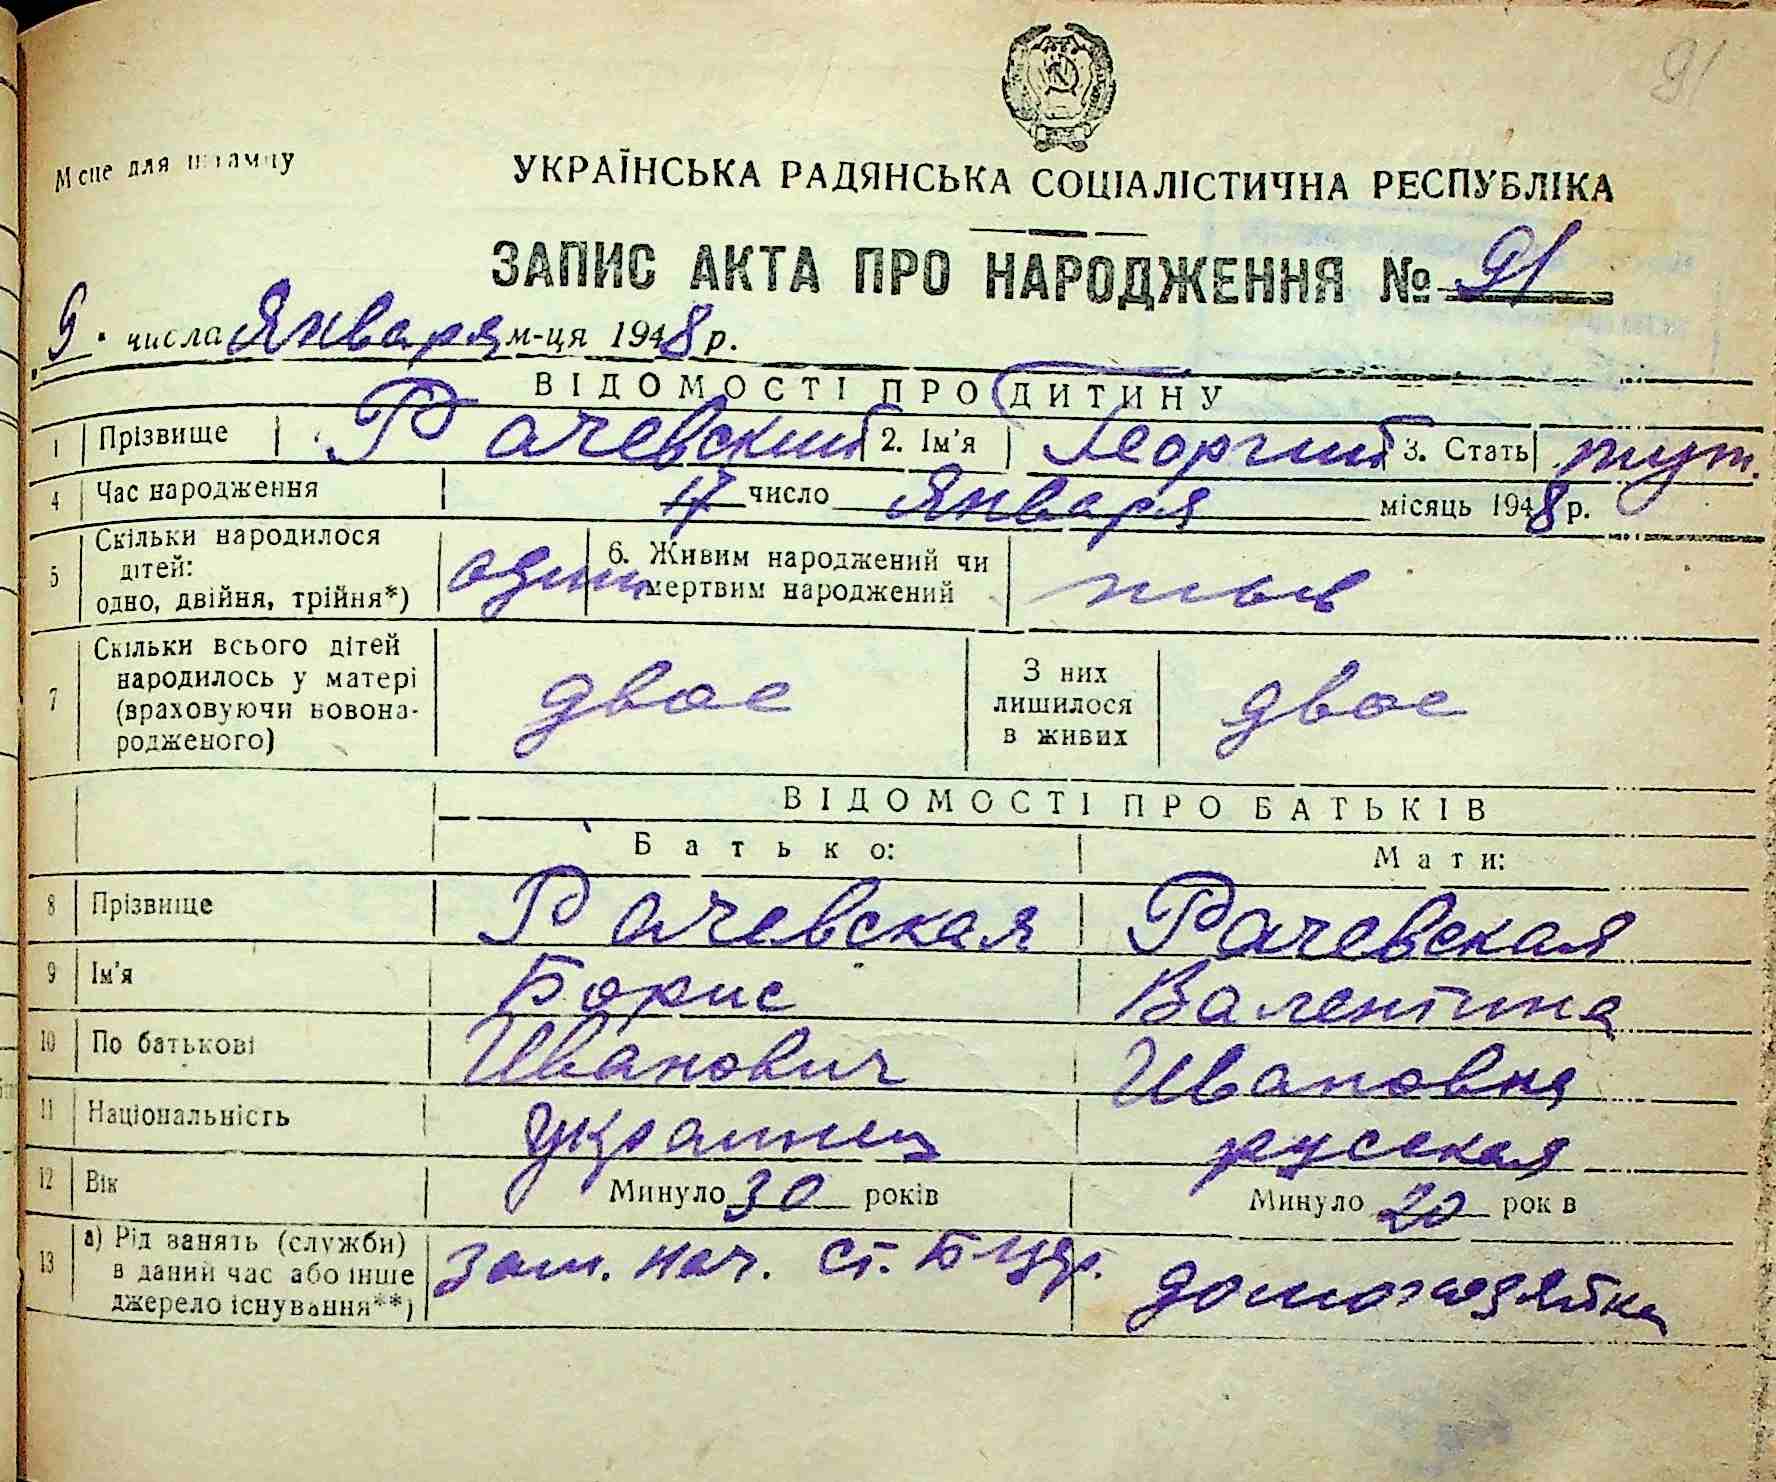 91
Місце для штампу
УКРАЇНСЬКА РАДЯНСЬКА СОЦІАЛІСТИЧНА РЕСПУБЛІКА
ЗАПИС АКТА ПРО НАРОДЖЕННЯ № 91
9. числа Января м-ця 1948 р.
ВІДОМОСТІ ПРО ДИТИНУ
1 Прізвище Рачевский 2. Ім'я Георгий 3. Стать муж.
4 Час народження 17 число Января місяць 1948 р.
5 Скільки народилося дітей: одно, двійня, трійня*) один 6. Живим народжений чи мертвим народжений жив
7 Скільки всього дітей народилось у матері (враховуючи новонародженого) двое З них лишилося в живих двое
ВІДОМОСТІ ПРО БАТЬКІВ
Батько: Мати:
8 Прізвище Рачевская Рачевская
9 Ім'я Борис Валентина
10 По батькові Иванович Ивановна
11 Національність украинец русская
12 Вік Минуло 30 років Минуло 20 років
13 а) Рід занять (служби) в даний час або інше джерело існування**) зам. нач. ст. домохозяйка